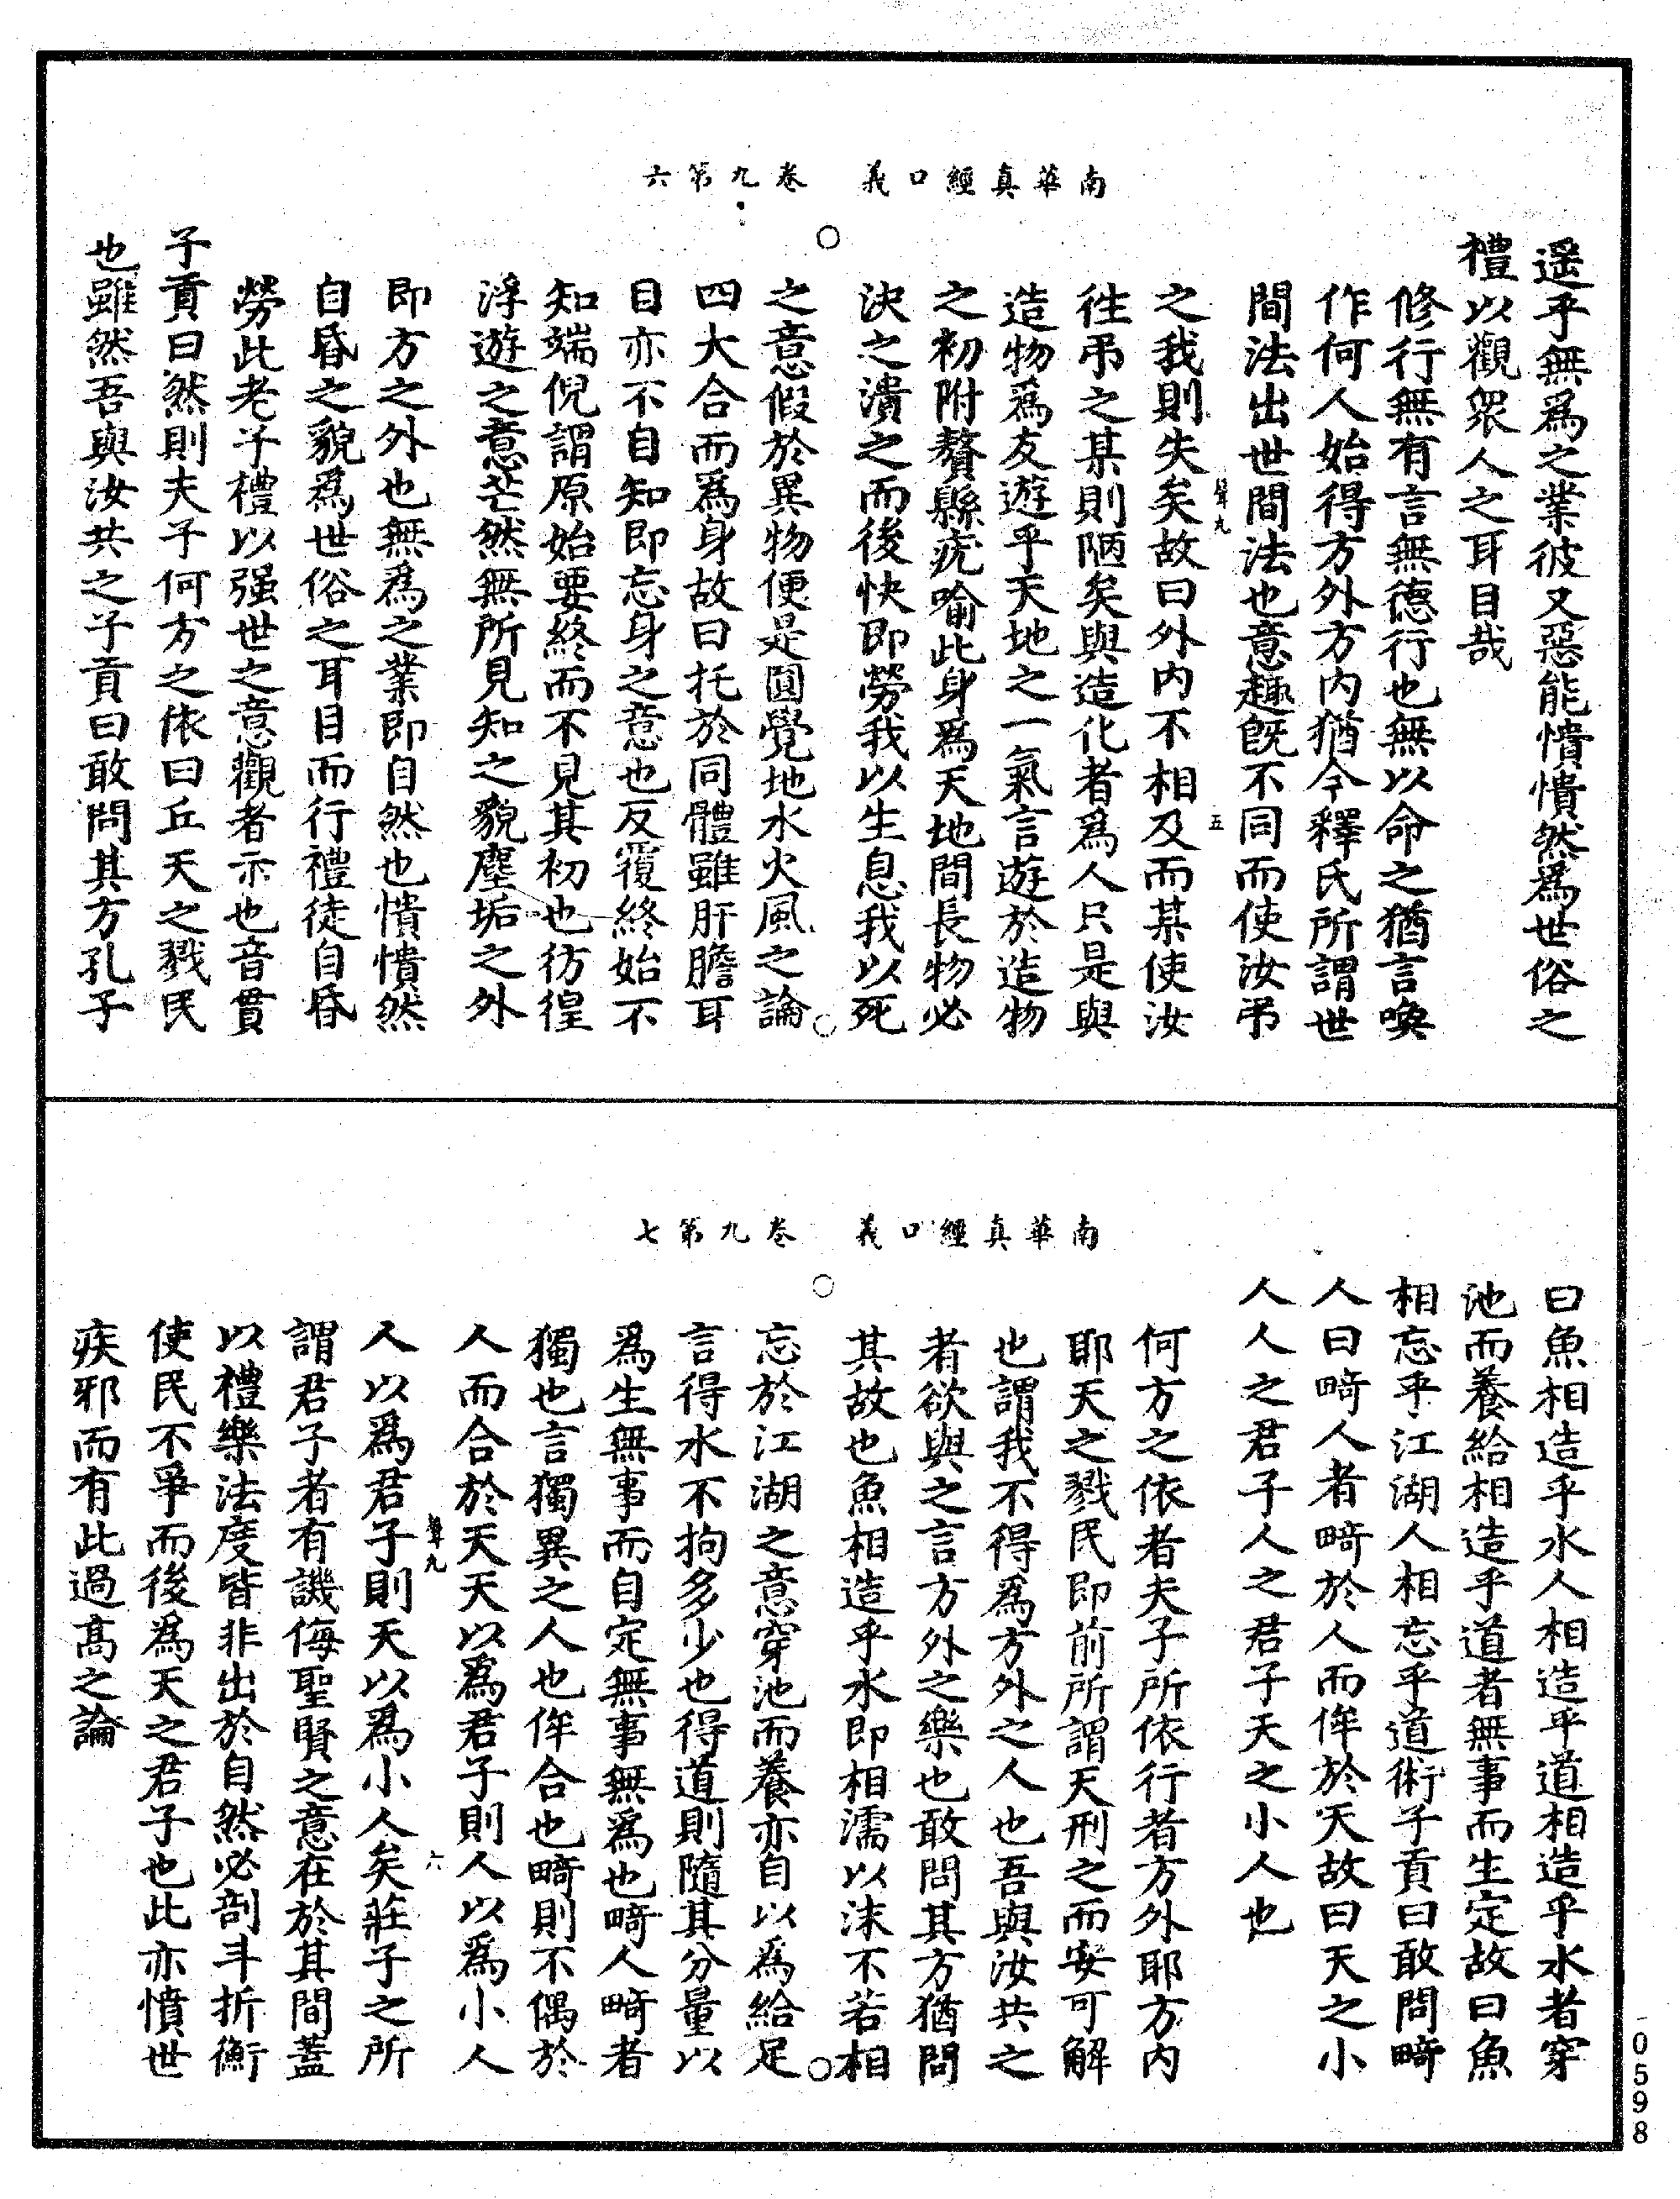 南華真經口義　卷九第六
遥乎無爲之業彼又惡能憒憒然爲世俗之
禮以觀衆人之耳目哉
修行無有言無德行也無以命之猶言喚
作何人始得方外方内猶今釋氏所謂世
間法出世間法也意趣旣不同而使汝弔
之我則失矣故曰外内不相及而某使汝
徃弔之某則陋矣與造化者爲人只是與
造物爲友遊乎天地之一氣言遊於造物
之初附贅縣疣喻此身爲天地間長物必
決之潰之而後快即勞我以生息我以死
之意假於異物便是圓覺地水火風之論
四大合而爲身故曰托於同體雖肝膽耳
目亦不自知即忘身之意也反覆終始不
知端倪謂原始要終而不見其初也彷徨
浮遊之意茫然無所見知之貌塵垢之外
即方之外也無爲之業即自然也憒憒然
自昏之貌爲世俗之耳目而行禮徒自昏
勞此老子禮以强世之意觀者示也音貫
子貢曰然則夫子何方之依曰丘天之戮民
也雖然吾與汝共之子貢曰敢問其方孔子
聲九
五
南華真經口義　卷九第七
曰魚相造乎水人相造乎道相造乎水者穿
池而養給相造乎道者無事而生定故曰魚
相忘乎江湖人相忘乎道術子貢曰敢問畸
人曰畸人者畸於人而侔於天故曰天之小
人人之君子人之君子天之小人也
何方之依者夫子所依行者方外耶方内
耶天之戮民即前所謂天刑之而安可解
也謂我不得爲方外之人也吾與汝共之
者欲與之言方外之樂也敢問其方猶問
其故也魚相造乎水即相濡以沫不若相
忘於江湖之意穿池而養亦自以爲給足
言得水不拘多少也得道則隨其分量以
爲生無事而自定無事無爲也畸人畸者
獨也言獨異之人也侔合也畸則不偶於
人而合於天天以爲君子則人以爲小人
人以爲君子則天以爲小人矣莊子之所
謂君子者有譏侮聖賢之意在於其間蓋
以禮樂法度皆非出於自然必剖斗折衡
使民不爭而後爲天之君子也此亦憤世
疾邪而有此過髙之論
聲九
六
0598